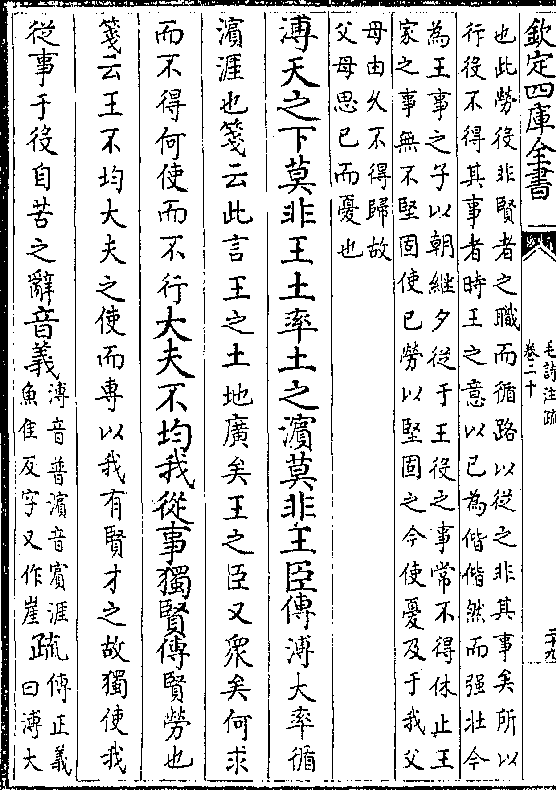 欽定四庫全書
毛詩注疏
卷二十
二十九
也此勞役非賢者之職而循路以從之非其事矣所以
行役不得其事者時王之意以已為偕偕然而强壯今
為王事之子以朝繼夕從于王役之事常不得休止王
家之事無不堅固使已勞以堅固之今使憂及于我父
母由久不得歸故
父母思已而憂也
溥天之下莫非王土率土之濱莫非王臣傳溥大率循
濱涯也箋云此言王之土地廣矣王之臣又衆矣何求
而不得何使而不行大夫不均我從事獨賢傳賢勞也
箋云王不均大夫之使而專以我有賢才之故獨使我
從事于役自苦之辭音義溥音普濱音賓涯
魚隹反字又作崖疏傳正義
曰溥大